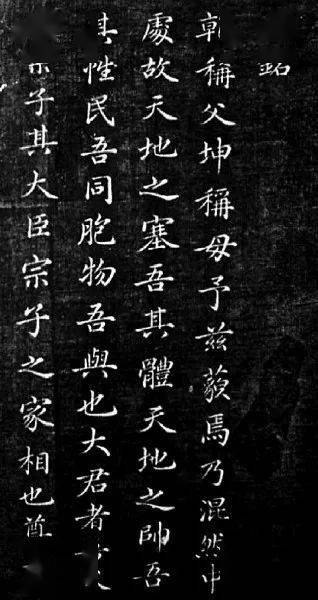 乾稱父坤稱母予兹藐焉乃混然中
處故天地之塞吾其體天地之帥吾
其性民吾同胞物吾與也大君者
宗子其大臣宗子之家相也